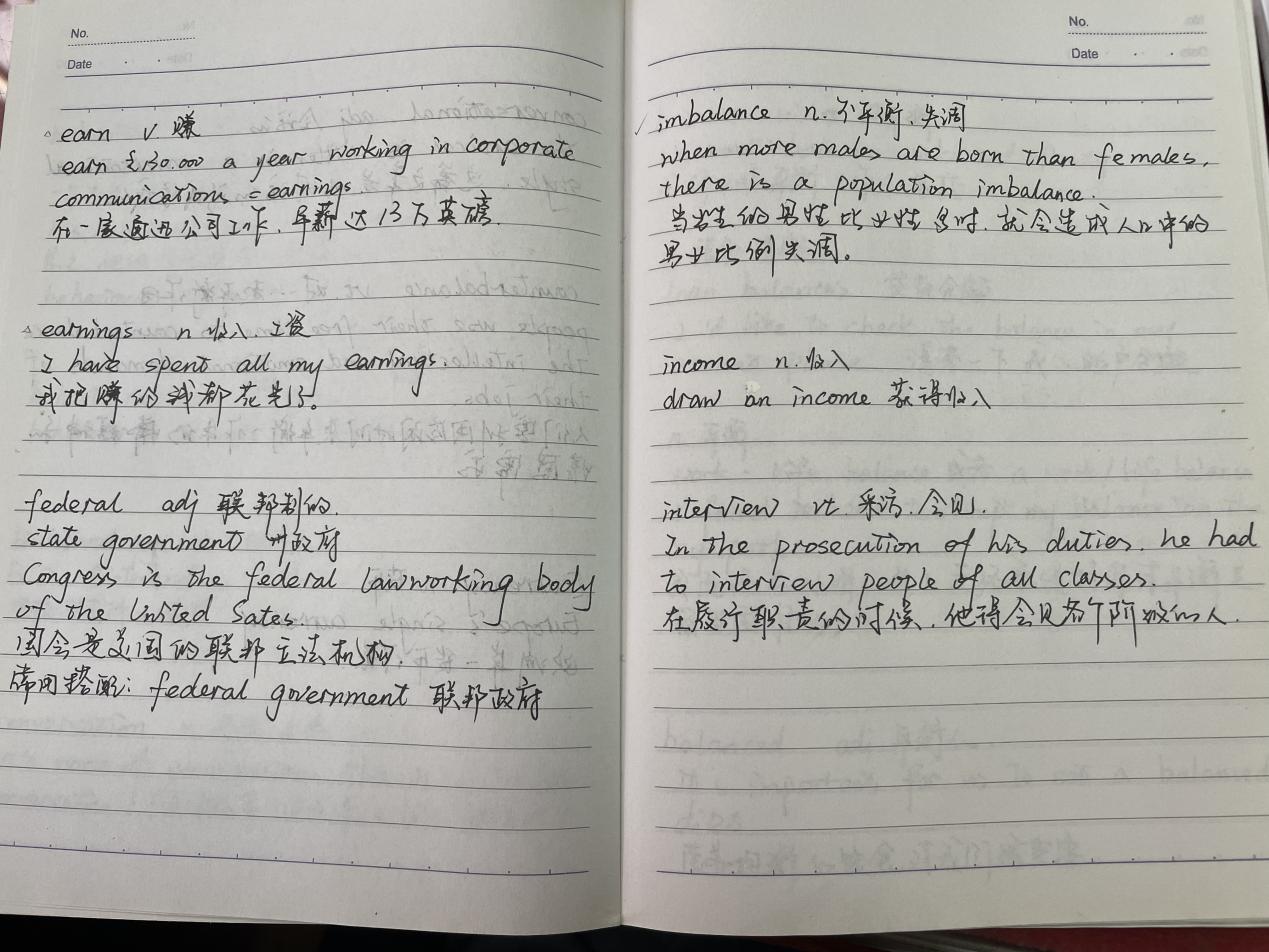 No.
Date
earn v 赚
earn £130.000 a year working in corporate
communications = earnings.
在一家通迅公司工作, 年薪达13万英磅.
earnings. n 收入. 工资
I have spent all my earnings.
我把赚的钱都花光了。
federal adj 联邦制的.
state government 州政府
Congress is the federal lawworking body
of the United Sates
国会是美国的联邦立法机构.
常用搭配: federal government 联邦政府
No.
Date
imbalance n. 不平衡, 失调
when more males are born than females,
there is a population imbalance.
当出生的男性比女性多时, 就会造成人口中的
男女比例失调。
income n. 收入
draw an income 获得收入
interview vt. 采访, 会见.
In the prosecution of his duties, he had
to interview people of all classes.
在履行职责的时候, 他得会见各个阶级的人.